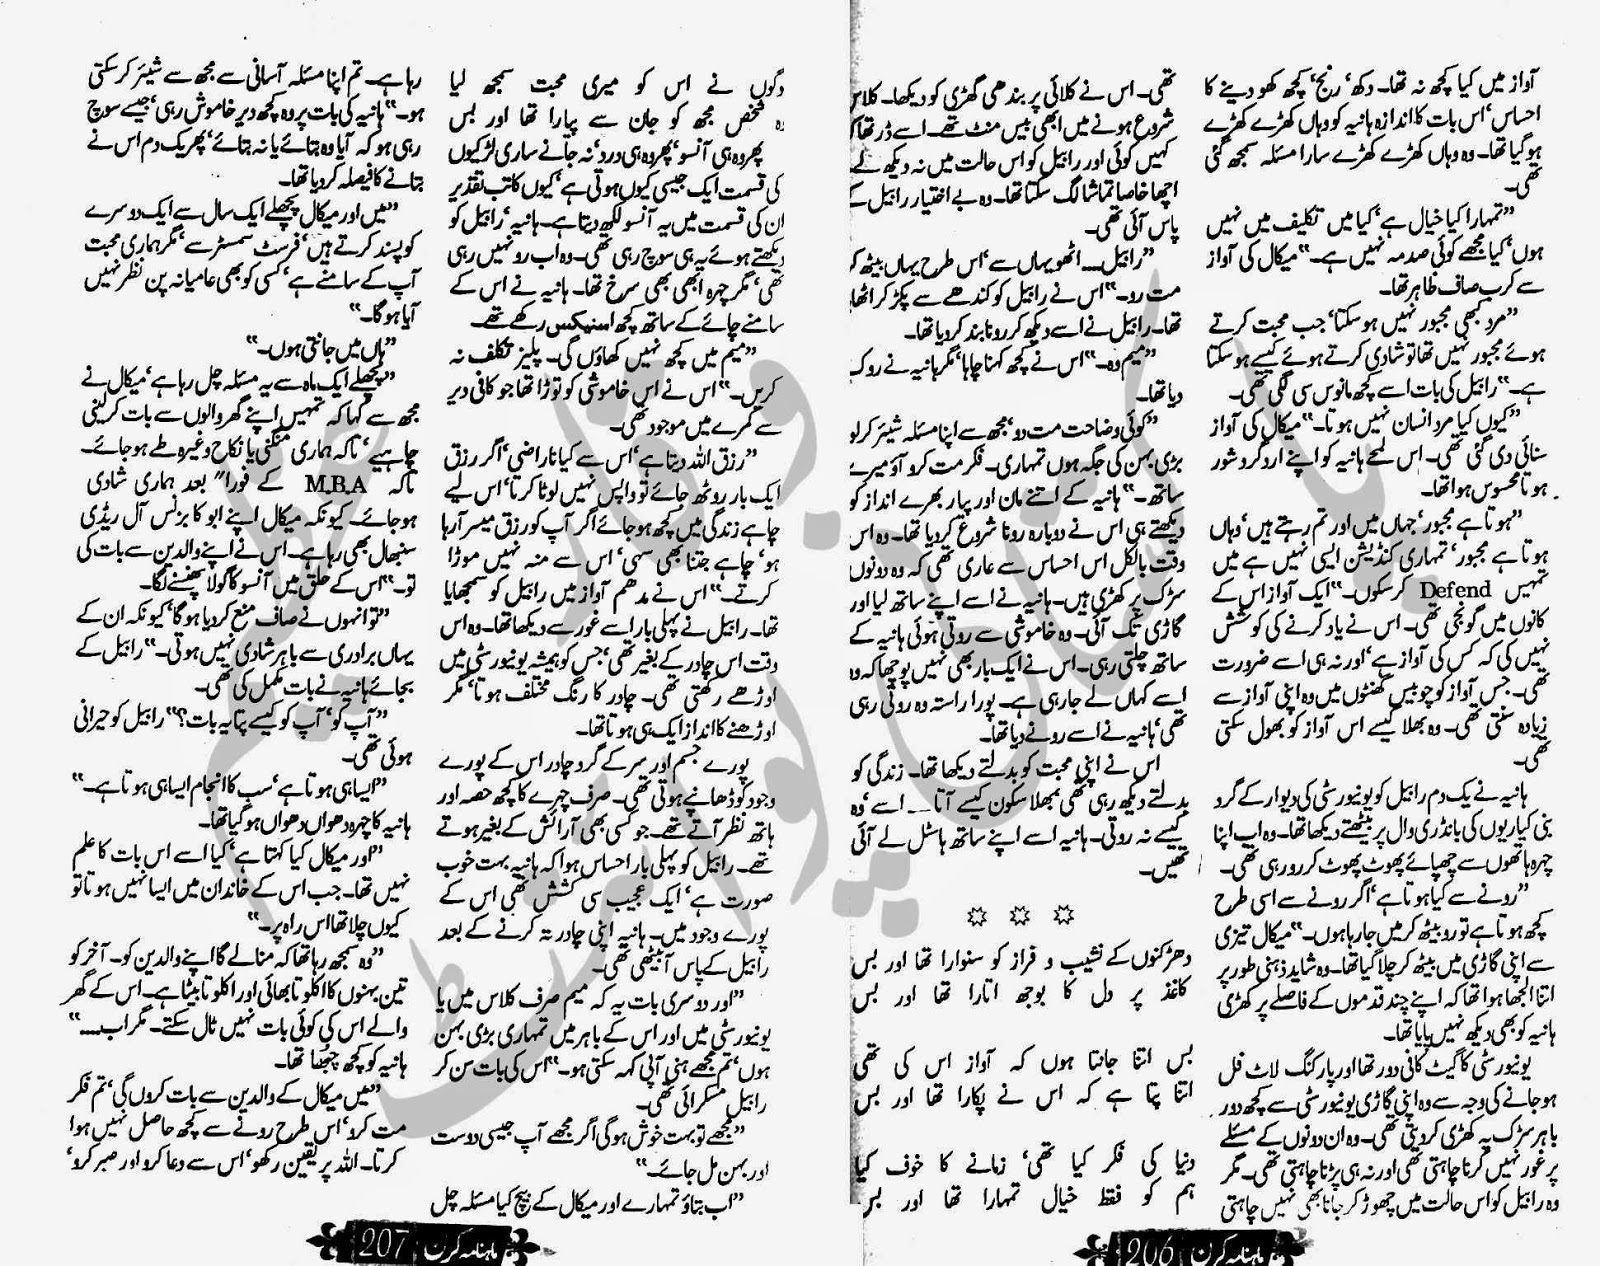 آواز میں کیا کچھ نہ تھا۔ دکھ‘ رنج‘ کچھ کھو دینے کا
احساس‘ اس بات کا اندازہ ہانیہ کو وہاں کھڑے کھڑے
ہوگیا تھا۔ وہ وہاں کھڑے کھڑے سارا مسئلہ سمجھ گئی
تھی۔
”تمہارا کیا خیال ہے‘ کیا میں تکلیف میں نہیں
ہوں‘ کیا مجھے کوئی صدمہ نہیں ہے۔“ میکال کی آواز
سے کرب صاف ظاہر تھا۔
”مرد بھی مجبور نہیں ہوسکتا‘ جب محبت کرتے
ہوئے مجبور نہیں تھا تو شادی کرتے ہوئے کیسے ہوسکتا
ہے۔“ رابیل کی بات اسے کچھ مانوس سی لگی تھی۔
”کیوں کیا مرد انسان نہیں ہوتا۔“ میکال کی آواز
سنائی دی گئی تھی۔ اس لمحے ہانیہ کو اپنے ارد گرد شور
ہوتا محسوس ہوا تھا۔
”ہوتا ہے مجبور‘ جہاں میں اور تم رہتے ہیں‘ وہاں
ہوتا ہے مجبور‘ تمہاری کنڈیشن ایسی نہیں ہے میں
تمہیں Defend کرسکوں۔“ ایک آواز اس کے
کانوں میں گونجی تھی۔ اس نے یاد کرنے کی کوشش
نہیں کی کہ کس کی آواز ہے‘ اور نہ ہی اسے ضرورت
تھی۔ جس آواز کو چوبیس گھنٹوں میں وہ اپنی آواز سے
زیادہ سنتی تھی۔ وہ بھلا کیسے اس آواز کو بھول سکتی
تھی۔
ہانیہ نے یک دم رابیل کو یونیورسٹی کی دیوار کے گرد
بنی کیاریوں کی بانڈری وال پر بیٹھتے دیکھا تھا۔ وہ اب اپنا
چہرہ ہاتھوں سے چھپائے پھوٹ پھوٹ کر رو رہی تھی۔
”رونے سے کیا ہوتا ہے‘ اگر رونے سے اسی طرح
کچھ ہوتا ہے تو رو بیٹھ کر میں جارہا ہوں۔“ میکال تیزی
سے اپنی گاڑی میں بیٹھ کر چلا گیا تھا۔ وہ شاید ذہنی طور پر
اتنا الجھا ہوا تھا کہ اپنے چند قدموں کے فاصلے پر کھڑی
ہانیہ کو بھی دیکھ نہیں پایا تھا۔
یونیورسٹی کا گیٹ کافی دور تھا اور پارکنگ لاٹ فل
ہوجانے کی وجہ سے وہ اپنی گاڑی یونیورسٹی سے کچھ دور
باہر سڑک پہ کھڑی کردیتی تھی۔ وہ ان دونوں کے مسئلے
پر غور نہیں کرنا چاہتی تھی اور نہ ہی پڑنا چاہتی تھی۔ مگر
وہ رابیل کو اس حالت میں چھوڑ کر جانا بھی نہیں چاہتی
تھی۔ اس نے کلائی پر بندھی گھڑی کو دیکھا۔ کلاس
شروع ہونے میں ابھی بیس منٹ تھے۔ اسے ڈر تھا
کہیں کوئی اور رابیل کو اس حالت میں نہ دیکھ لے
اچھا خاصا تماشا لگ سکتا تھا۔ وہ بے اختیار رابیل کے
پاس آئی تھی۔
”رابیل۔۔۔ اٹھو یہاں سے‘ اس طرح یہاں بیٹھ کر
مت رو۔“ اس نے رابیل کو کندھے سے پکڑ کر اٹھایا
تھا۔ رابیل نے اسے دیکھ کر رونا بند کردیا تھا۔
”میم وہ۔“ اس نے کچھ کہنا چاہا‘ مگر ہانیہ نے روک
دیا تھا۔
”کوئی وضاحت مت دو‘ مجھ سے اپنا مسئلہ شیئر کرلو
بڑی بہن کی جگہ ہوں تمہاری۔ فکر مت کرو آؤ میرے
ساتھ۔“ ہانیہ کے اتنے مان اور پیار بھرے انداز کو
دیکھتے ہی اس نے دوبارہ رونا شروع کردیا تھا۔ وہ اس
وقت بالکل اس احساس سے عاری تھی کہ وہ دونوں
سڑک پر کھڑی ہیں۔ ہانیہ نے اسے اپنے ساتھ لیا اور
گاڑی تک آئی۔ وہ خاموشی سے روتی ہوئی ہانیہ کے
ساتھ چلتی رہی۔ اس نے ایک بار بھی نہیں پوچھا کہ وہ
اسے کہاں لے جارہی ہے۔ پورا راستہ وہ روتی رہی
تھی‘ ہانیہ نے اسے رونے دیا تھا۔
اس نے اپنی محبت کو بدلتے دیکھا تھا۔ زندگی کو
بدلتے دیکھ رہی تھی بھلا سکون کیسے آتا۔۔۔ اسے‘ وہ
کیسے نہ روتی۔ ہانیہ اسے اپنے ساتھ ہاسٹل لے آئی
تھیں۔
دھڑکنوں کے نشیب و فراز کو سنوارا تھا اور بس
کاغذ پر دل کا بوجھ اتارا تھا اور بس
بس اتنا جانتا ہوں کہ آواز اس کی تھی
اتنا پتا ہے کہ اس نے پکارا تھا اور بس
دنیا کی فکر کیا تھی‘ زمانے کا خوف کیا
ہم کو فقط خیال تمہارا تھا اور بس
ماہنامہ کرن 206
لوگوں نے اس کو میری محبت سمجھ لیا
وہ شخص مجھ کو جان سے پیارا تھا اور بس
پھر وہ ہی آنسو‘ پھر وہ ہی درد‘ نہ جانے ساری لڑکیوں
کی قسمت ایک جیسی کیوں ہوتی ہے‘ کیوں کاتب تقدیر
ان کی قسمت میں یہ آنسو لکھ دیتا ہے۔ ہانیہ‘ رابیل کو
دیکھتے ہوئے یہ ہی سوچ رہی تھی۔ وہ اب رو نہیں رہی
تھی‘ مگر چہرہ ابھی بھی سرخ تھا۔ ہانیہ نے اس کے
سامنے چائے کے ساتھ کچھ اسنیکس رکھے تھے۔
”میم میں کچھ نہیں کھاؤں گی۔ پلیز تکلف نہ
کریں۔“ اس نے اس خاموشی کو توڑا تھا جو کافی دیر
سے کمرے میں موجود تھی۔
”رزق اللہ دیتا ہے‘ اس سے کیا ناراضی‘ اگر رزق
ایک بار روٹھ جائے تو واپس نہیں لوٹا کرتا‘ اس لیے
چاہے زندگی میں کچھ ہوجائے اگر آپ کو رزق میسر آرہا
ہو‘ چاہے جتنا بھی سہی‘ اس سے منہ نہیں موڑا
کرتے۔“ اس نے مدھم آواز میں رابیل کو سمجھایا
تھا۔ رابیل نے پہلی بار اسے غور سے دیکھا تھا۔ وہ اس
وقت اس چادر کے بغیر تھی‘ جس کو ہمیشہ یونیورسٹی میں
اوڑھے رکھتی تھی۔ چادر کا رنگ مختلف ہوتا‘ مگر
اوڑھنے کا انداز ایک ہی ہوتا تھا۔
پورے جسم اور سر کے گرد چادر اس کے پورے
وجود کو ڈھانپے ہوتی تھی۔ صرف چہرے کا کچھ حصہ اور
ہاتھ نظر آتے تھے۔ جو کسی بھی آرائش کے بغیر ہوتے
تھے۔ رابیل کو پہلی بار احساس ہوا کہ ہانیہ بہت خوب
صورت ہے‘ ایک عجیب سی کشش تھی اس کے
پورے وجود میں۔ ہانیہ اپنی چادر تہ کرنے کے بعد
رابیل کے پاس آبیٹھی تھی۔
”اور دوسری بات یہ کہ میم صرف کلاس میں یا
یونیورسٹی میں اور اس کے باہر میں تمہاری بڑی بہن
ہوں‘ تم مجھے ہنی آپی کہہ سکتی ہو۔“ اس کی بات سن کر
رابیل مسکرائی تھی۔
”مجھے تو بہت خوش ہوگی اگر مجھے آپ جیسی دوست
اور بہن مل جائے۔“
”اب بتاؤ تمہارے اور میکال کے بیچ کیا مسئلہ چل
رہا ہے۔ تم اپنا مسئلہ آسانی سے مجھ سے شیئر کرسکتی
ہو۔“ ہانیہ کی بات پر وہ کچھ دیر خاموش رہی‘ جیسے سوچ
رہی ہو کہ آیا وہ بتائے یا نہ بتائے‘ پھر یک دم اس نے
بتانے کا فیصلہ کردیا تھا۔
”میں اور میکال پچھلے ایک سال سے ایک دوسرے
کو پسند کرتے ہیں‘ فرسٹ سمسٹر سے‘ مگر ہماری محبت
آپ کے سامنے ہے‘ کسی کو بھی عامیانہ پن نظر نہیں
آیا ہوگا۔“
”ہاں میں جانتی ہوں۔“
”پچھلے ایک ماہ سے یہ مسئلہ چل رہا ہے‘ میکال نے
مجھ سے کہا کہ تمہیں اپنے گھر والوں سے بات کرلینی
چاہیے‘ تاکہ ہماری منگنی یا نکاح وغیرہ طے ہوجائے۔
تاکہ M.B.A کے فوراً بعد ہماری شادی
ہوجائے۔ کیونکہ میکال اپنے ابو کا بزنس آل ریڈی
سنبھال بھی رہا ہے۔ اس نے اپنے والدین سے بات کی
تو۔“ اس کے حلق میں آنسو کا گولا پھنسنے لگا۔
”تو انہوں نے صاف منع کردیا ہوگا‘ کیونکہ ان کے
یہاں برادری سے باہر شادی نہیں ہوتی۔“ رابیل کے
بجائے ہانیہ نے بات مکمل کی تھی۔
”آپ کو‘ آپ کو کیسے پتا یہ بات؟“ رابیل کو حیرانی
ہوئی تھی۔
”ایسا ہی ہوتا ہے‘ سب کا انجام ایسا ہی ہوتا ہے۔“
ہانیہ کا چہرہ دھواں دھواں ہوگیا تھا۔
”اور میکال کیا کہتا ہے‘ کیا اسے اس بات کا علم
نہیں تھا۔ جب اس کے خاندان میں ایسا نہیں ہوتا تو
کیوں چلا تھا اس راہ پر۔“
”وہ سمجھ رہا تھا کہ منالے گا اپنے والدین کو۔ آخر کو
تین بہنوں کا اکلوتا بھائی اور اکلوتا بیٹا ہے۔ اس کے گھر
والے اس کی کوئی بات نہیں ٹال سکتے۔ مگر اب۔۔۔“
ہانیہ کو کچھ چبھا تھا۔
”میں میکال کے والدین سے بات کروں گی‘ تم فکر
مت کرو‘ اس طرح رونے سے کچھ حاصل نہیں ہوا
کرتا۔ اللہ پر یقین رکھو‘ اس سے دعا کرو اور صبر کرو‘
ماہنامہ کرن 207